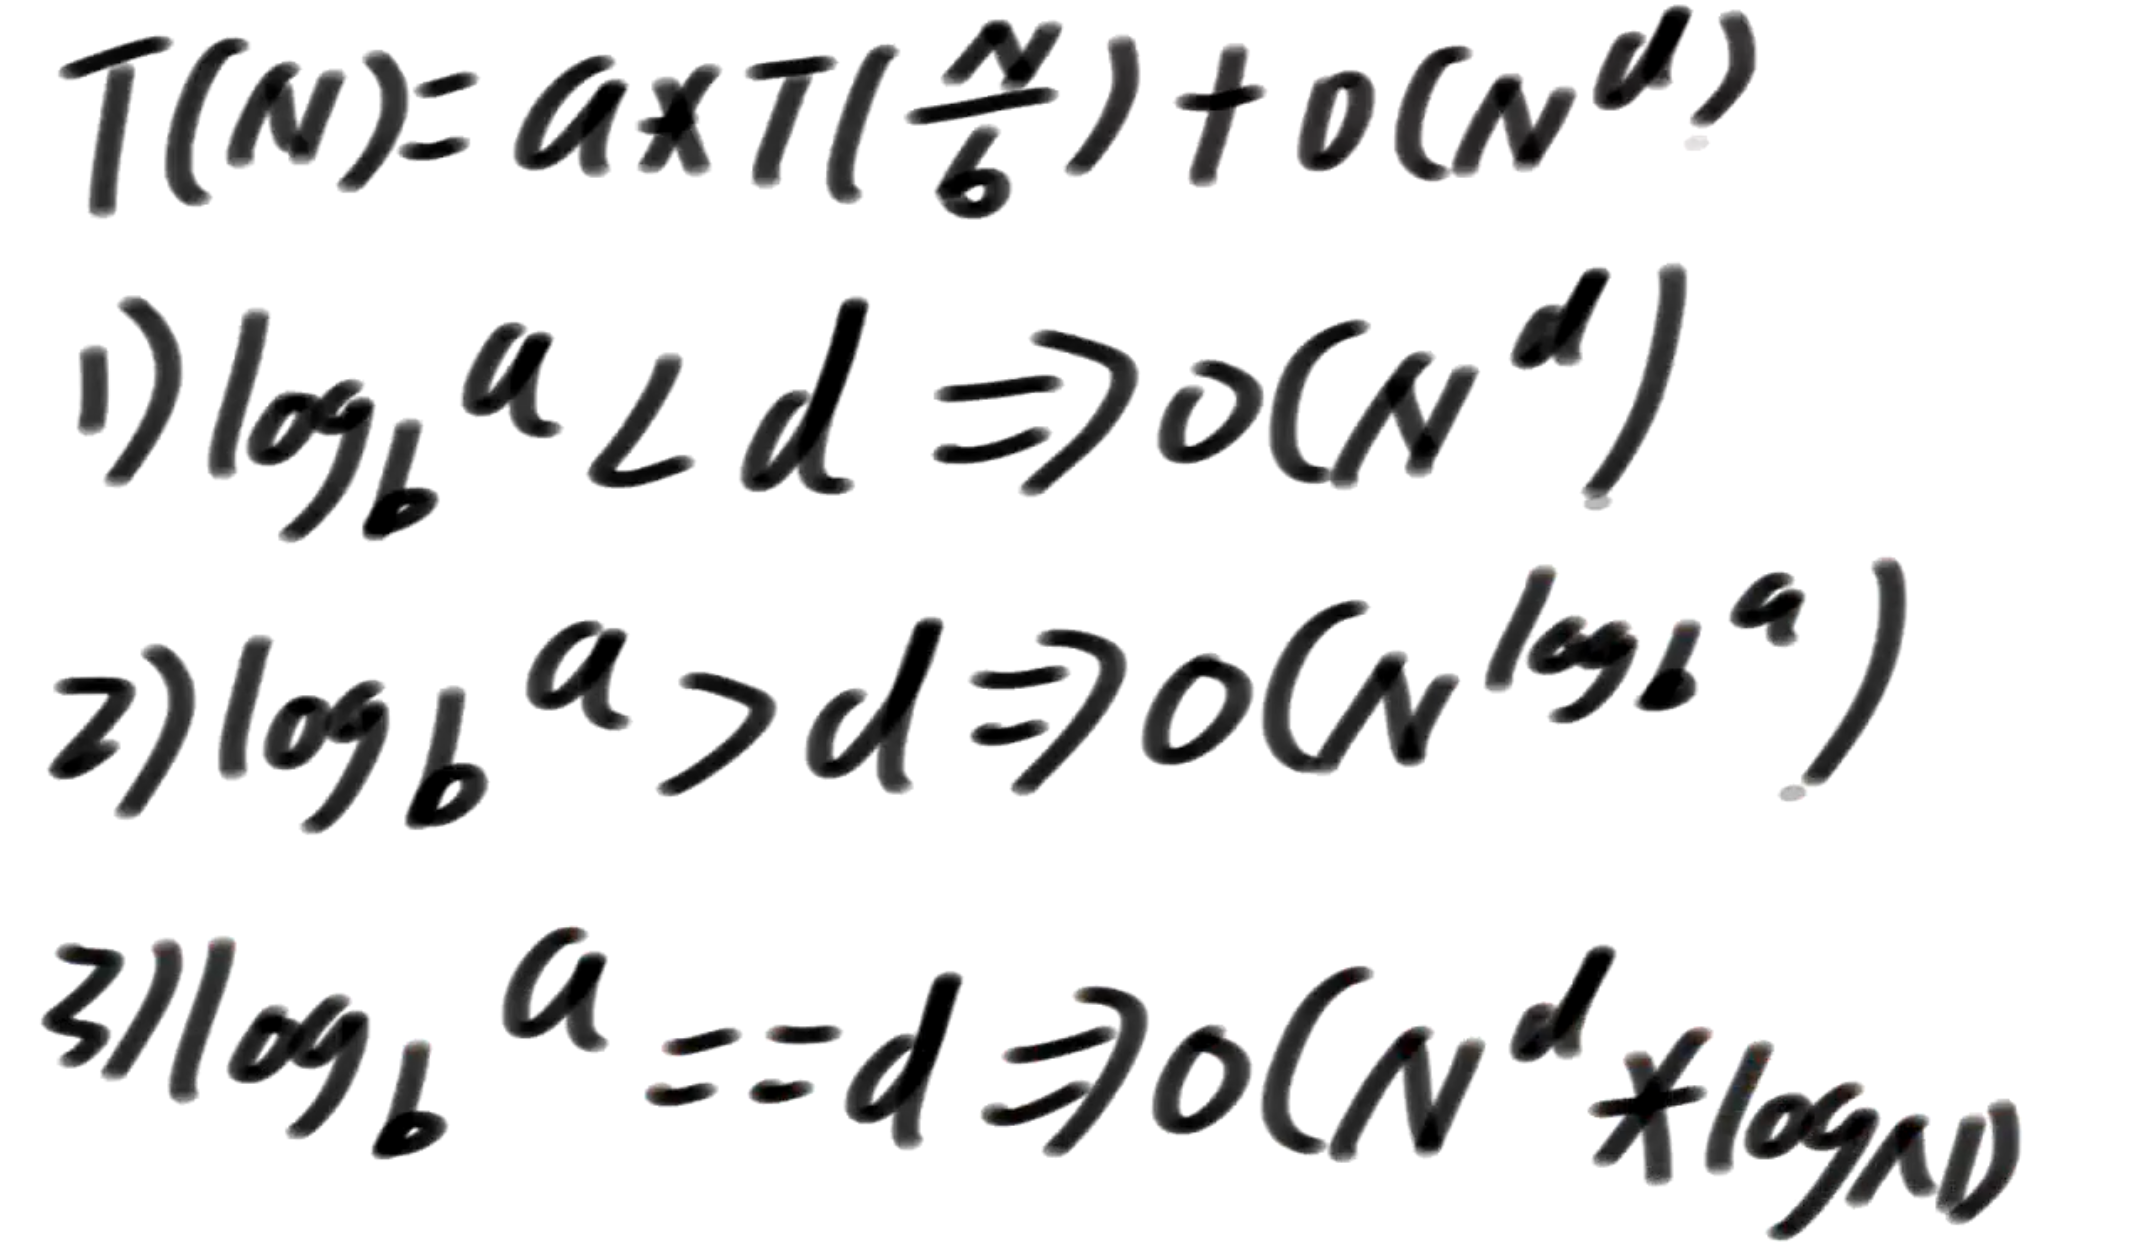 T(N) = a * T(N/b) + O(N^d)
1) log_b^a < d => O(N^d)
2) log_b^a > d => O(N^(log_b^a))
3) log_b^a == d => O(N^d * logN)